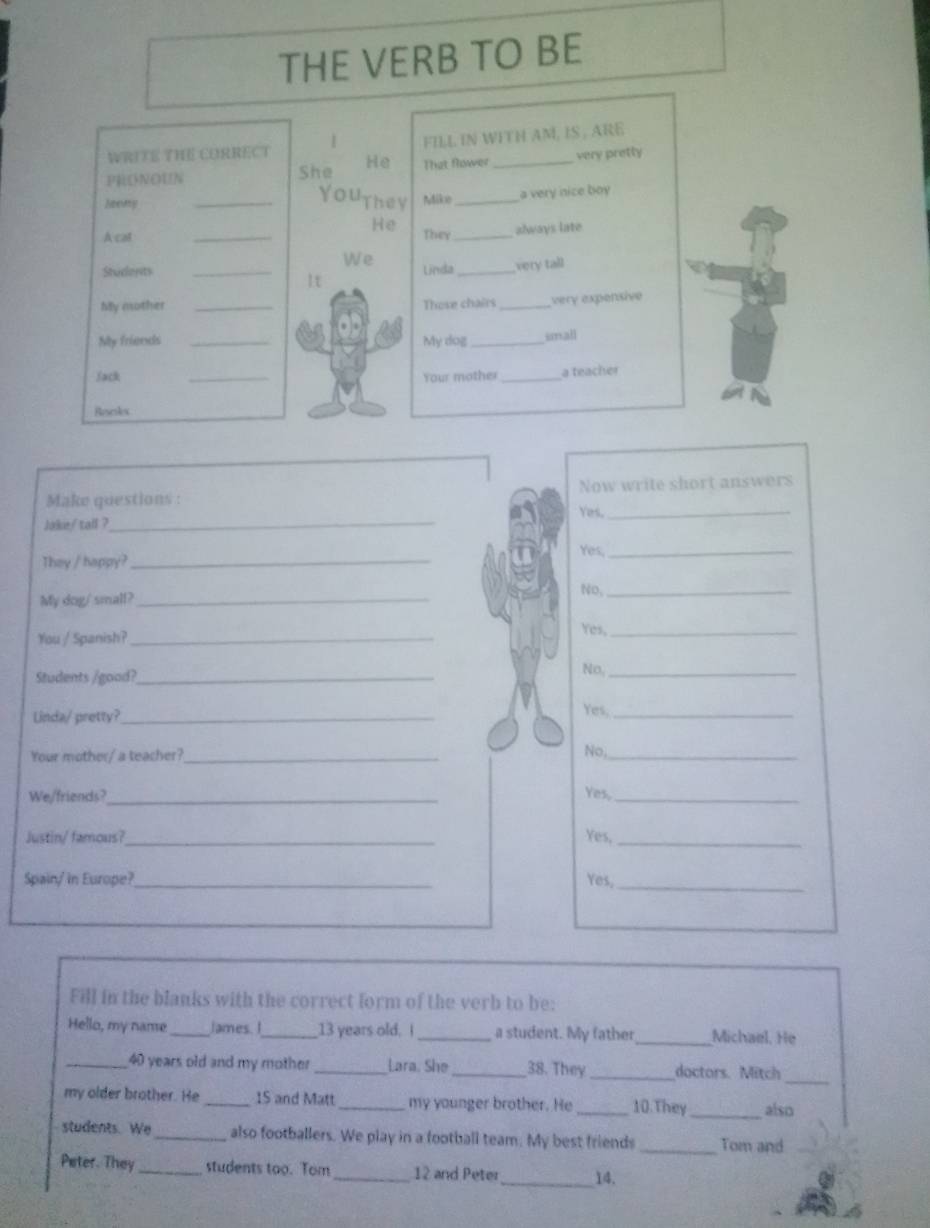 THE VERB TO BE
WRITE THE CORRECT
PRONOUN
Jenny ________
A cat ________
Students ________
My mother ________
My friends ________
Jack ________
Books
I
She He
You They
He
We
It
FILL IN WITH AM, IS , ARE
That flower ________ very pretty
Mike ________ a very nice boy
They ________ always late
Linda ________ very tall
Those chairs ________ very expensive
My dog ________ small
Your mother ________ a teacher
Make questions :
Jake/ tall ? ________
They / happy? ________
My dog/ small? ________
You / Spanish? ________
Students /good? ________
Linda/ pretty? ________
Your mother/ a teacher? ________
We/friends? ________
Justin/ famous? ________
Spain/ in Europe? ________
Now write short answers
Yes, ________
Yes, ________
No, ________
Yes, ________
No, ________
Yes, ________
No, ________
Yes, ________
Yes, ________
Yes, ________
Fill in the blanks with the correct form of the verb to be:
Hello, my name ______ James. I ______ 13 years old. I ______ a student. My father ______ Michael. He
______ 40 years old and my mother ______ Lara. She ______ 38. They ______ doctors. Mitch ______
my older brother. He ______ 15 and Matt ______ my younger brother. He ______ 10.They ______ also
students. We ______ also footballers. We play in a football team. My best friends ______ Tom and
Peter. They ______ students too. Tom ______ 12 and Peter ______ 14.